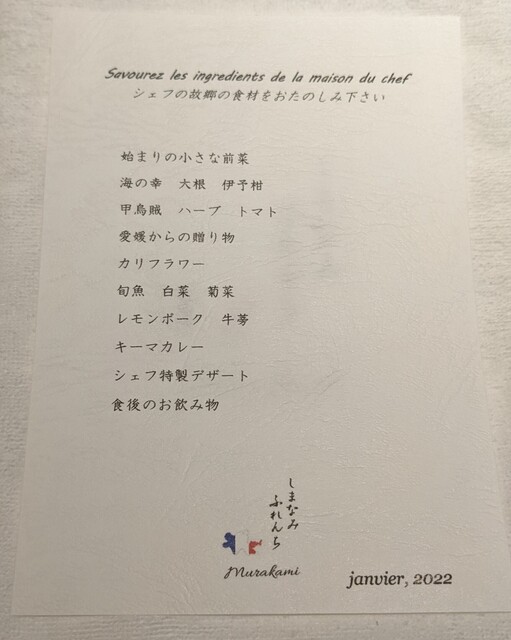 Savourez les ingredients de la maison du chef
シェフの故郷の食材をおたのしみ下さい
始まりの小さな前菜
海の幸　大根　伊予柑
甲烏賊　ハーブ　トマト
愛媛からの贈り物
カリフラワー
旬魚　白菜　菊菜
レモンポーク　牛蒡
キーマカレー
シェフ特製デザート
食後のお飲み物
しまなみ
ふれんち
Murakami
janvier, 2022